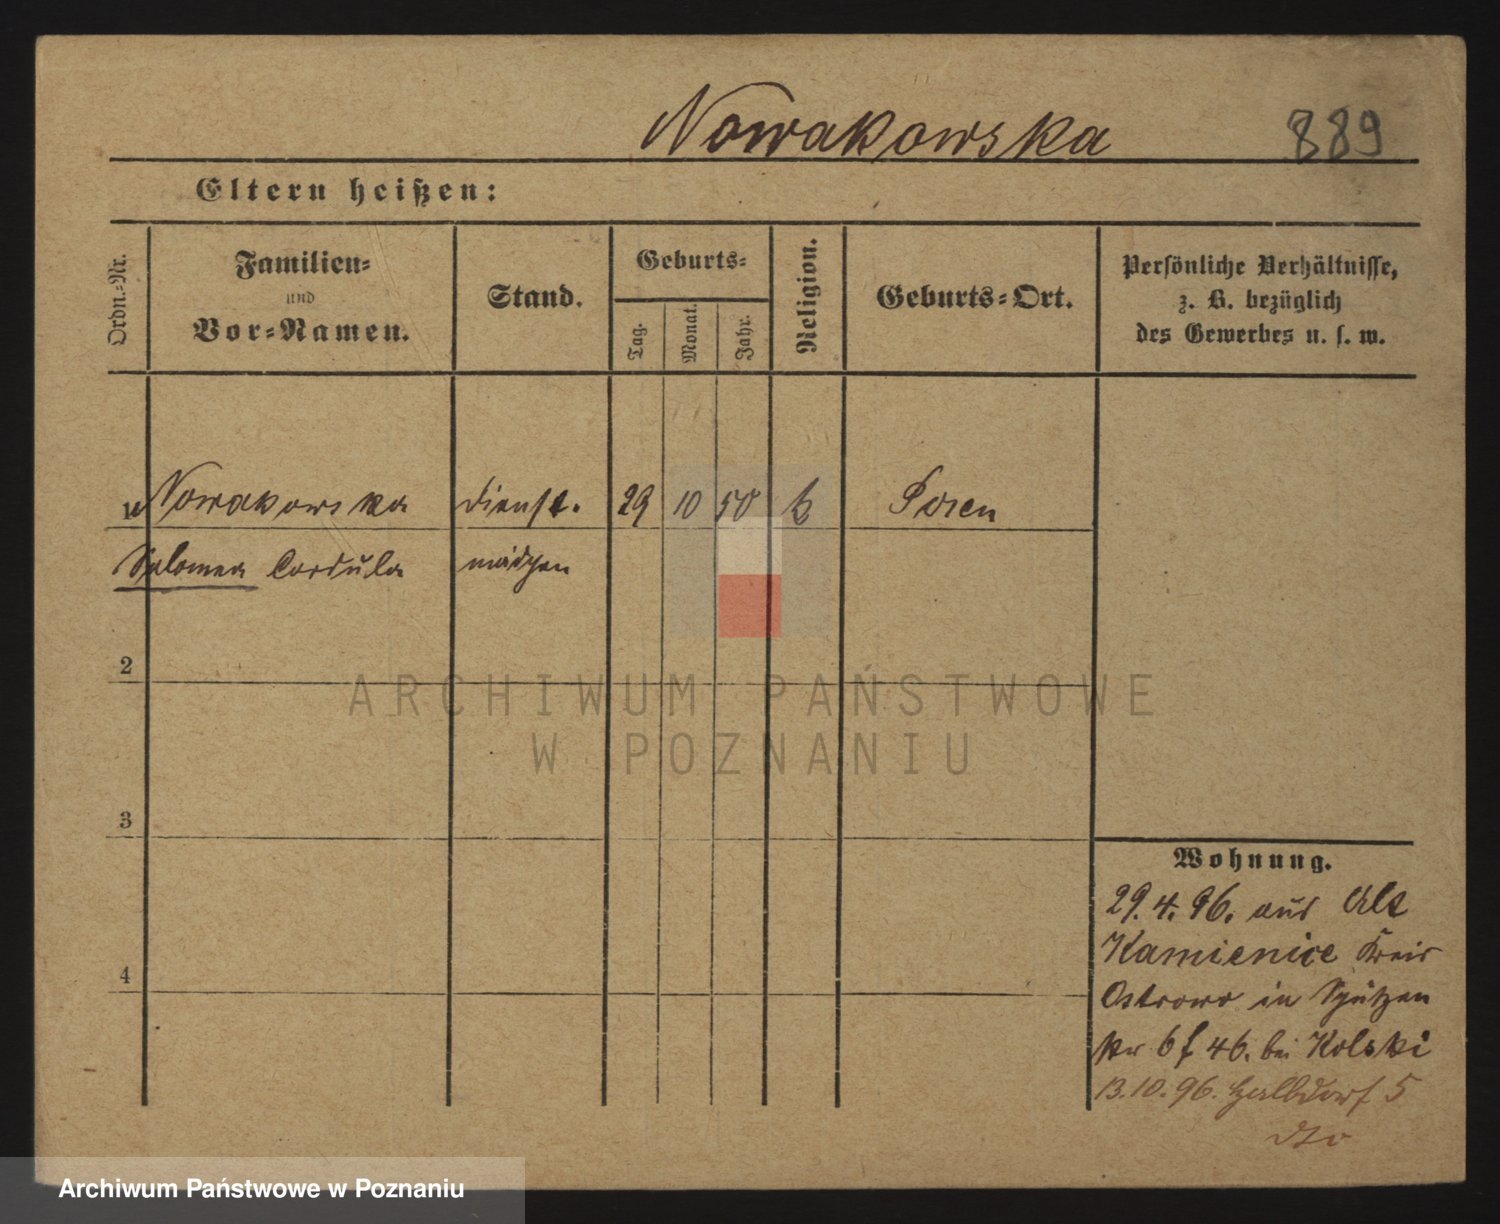 Nowakowska 889
Eltern heißen:
Ordn.-Nr.
Familien-
und
Vor-Namen.
Stand.
Geburts-
Tag.
Monat.
Jahr.
Religion.
Geburts-Ort.
Persönliche Verhältnisse,
z. B. bezüglich
des Gewerbes u. s. w.
1 Nowakowska dienst. 29 10 50 k Posen
Salomea Cordula mädchen
2
3
4
Wohnung.
29.4.96. aus Alt
Kamienice Kreis
Ostrowo in Schützen
str 6 f 46. bei Kolski
13.10.96. Halbdorf 5
dto
ARCHIWUM PAŃSTWOWE
W POZNANIU
Archiwum Państwowe w Poznaniu